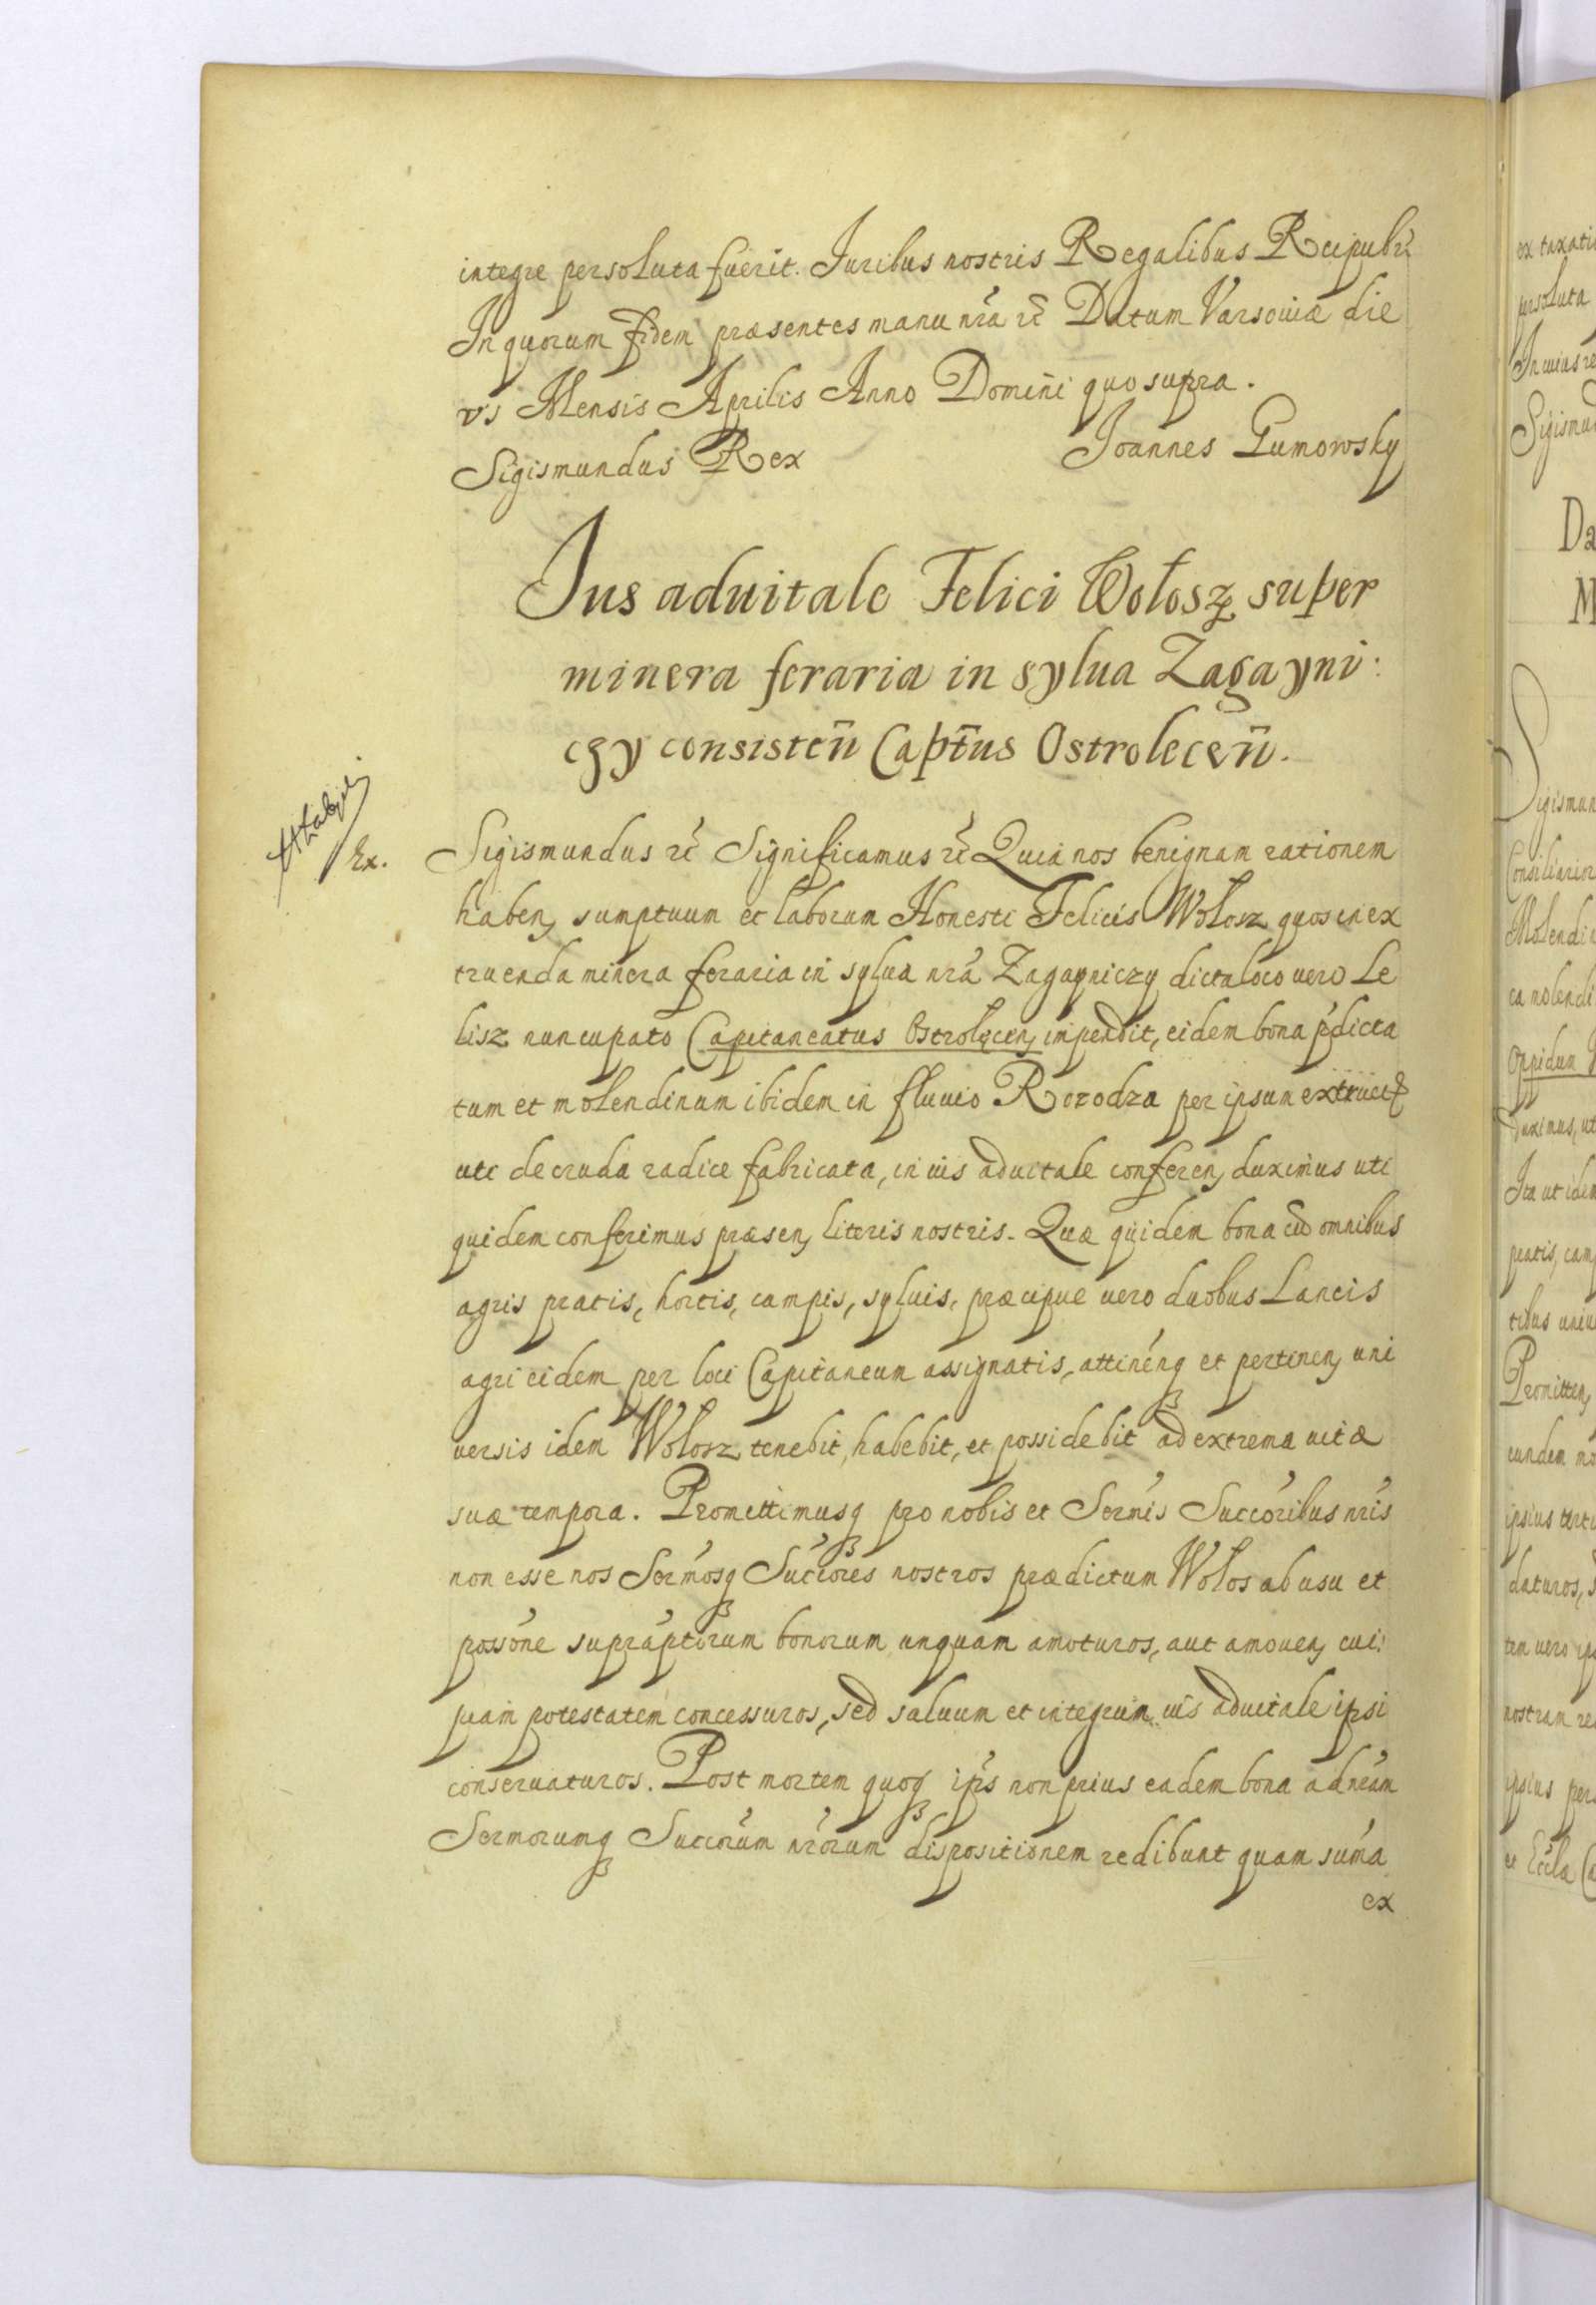 integre persoluta fuerit. Iuribus nostris Regalibus Reipubl:
In quorum fidem præsentes manu nr̃a rc̃ Datum Varsoviæ die
vs Mensis Aprilis Anno Domini quo supra.
Sigismundus Rex Joannes Gumowsky
Jus aduitale Felici Wołosz super
minera feraria in sylua Zagayni:
czy consisten̄ Capt̄us Ostrolecen̄.
Ex.
Sigismundus rc̃ Significamus rc̃ Quia nos benignam rationem
haben, sumptuum et laborum Honesti Felicis Wolosz quos in ex
truenda minera feraria in sylua nr̃a Zagayniczy dicta loco uero Le
lisz nuncupato Capitaneatus Ostrolęcen, impendit, eidem bona p̃dicta
tum et molendinum ibidem in fluuio Rozodza per ipsum extruct
uti de cruda radice fabricata, in ius aduitale conferen, duximus uti
quidem conferimus præsen, literis nostris. Quæ quidem bona cũ omnibus
agris pratis, hortis, campis, syluis, præcipue uero duobus Laneis
agri eidem per loci Capitaneum assignatis, attinen̄q et pertinen, uni
uersis idem Wolosz tenebit, habebit, et possidebit ad extrema uitæ
suæ tempora. Promittimusq pro nobis et Serm̃is Succõribus nr̃is
non esse nos Serm̃osq Succõres nostros prædictum Wolos ab usu et
possõne suprãptorum bonorum unquam amoturos, aut amouen, cui:
piam potestatem concessuros, sed saluum et integrum ius aduitale ipsi
conseruaturos. Post mortem quoq ip̃s non prius eadem bona ad nr̃am
Sermorumq Succõrum nr̃orum dispositionem redibunt quam sum̃a
ex
ex taxati
persoluta
In cuius re
Sigismu
Da
M
Sigismun
Consiliarior
Molendi
ca molendi
Oppidum
duximus, ut
Ita ut idem
pratis, camp
tibus
Promitten,
eundem mo
ipsius
daturos, s
tem uero ip
nostram re
ipsius pers
et Eccla Ca